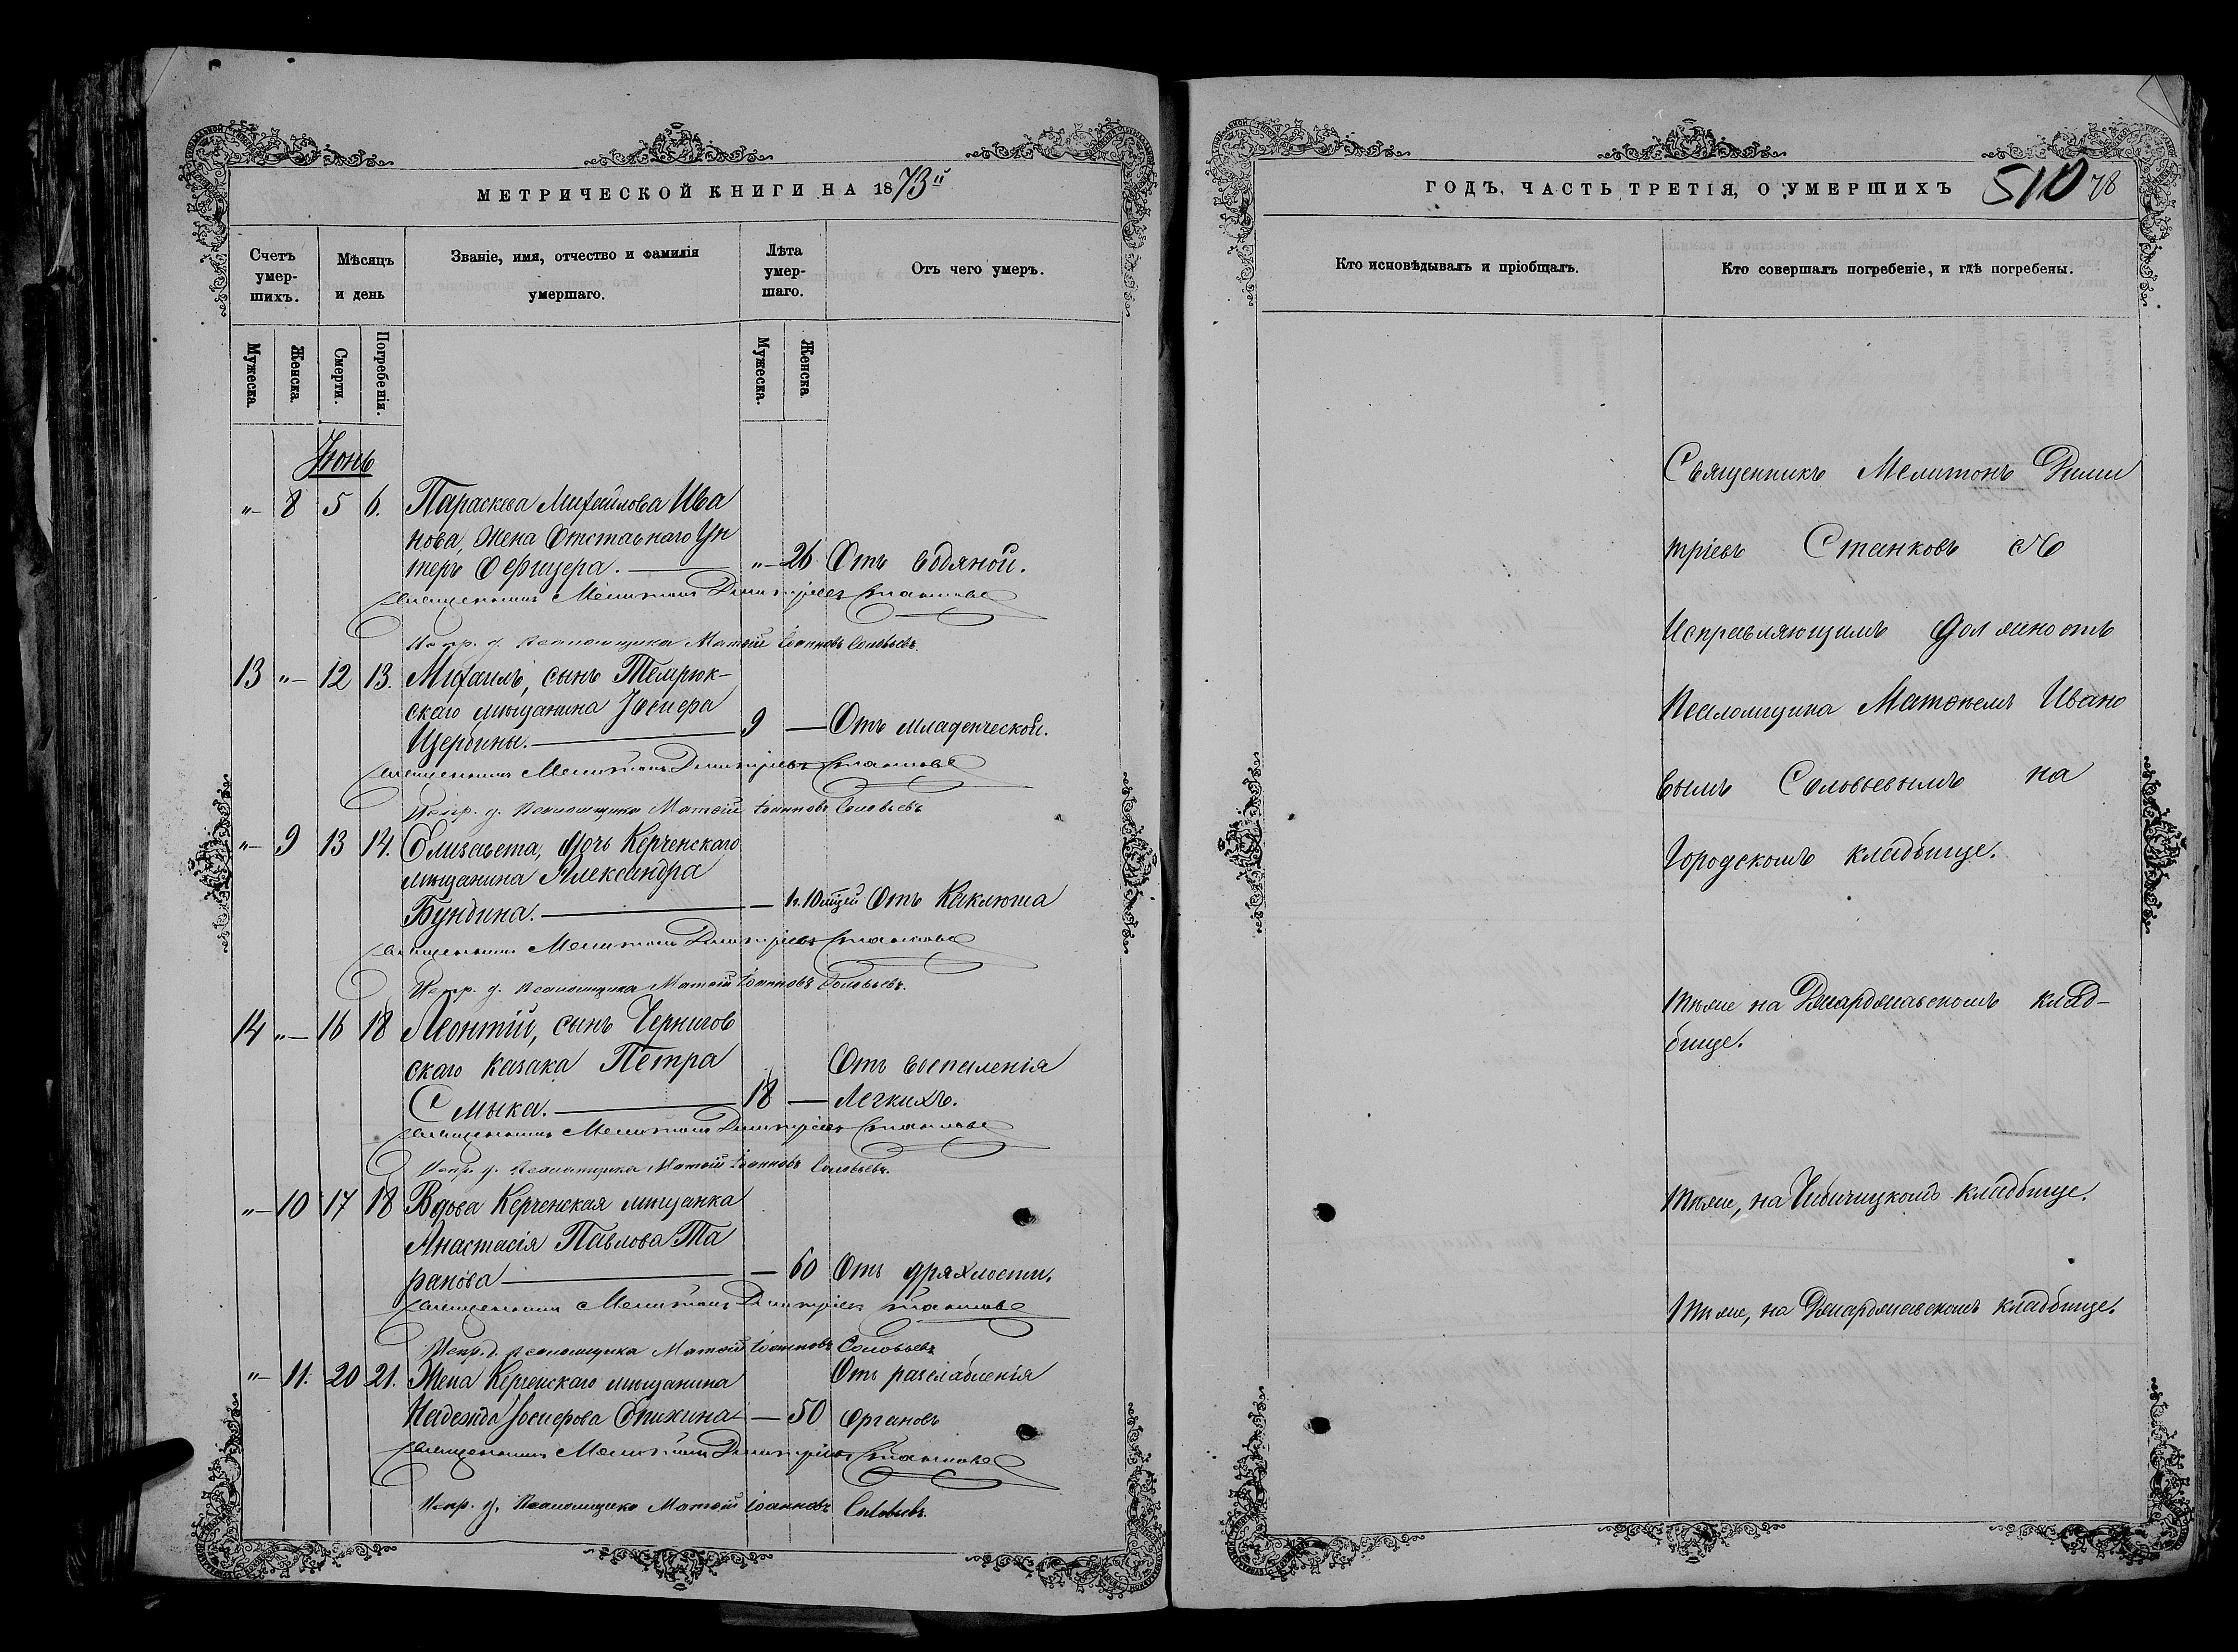 МЕТРИЧЕСКОЙ КНИГИ НА 1873й
Счетъ умер-шихъ.
Мѣсяцъ и день
Званіе, имя, отчество и фамилія умершаго.
Лѣта умер-шаго.
Отъ чего умеръ.
Мужеска.
Женска.
Смерти.
Погребенія.
Мужеска.
Женска
Іюнь
"– 8 5 6. Параскева Михайлова Ива
нова, жена Отставнаго Ун
теръ Офицера. — "– 26 Отъ водяной.
Священникъ Мелитонъ Димитріевъ Станковъ
Испр. д. Псаломщика Матѳій Іоанновъ Соловьевъ.
13 "– 12 13. Михаилъ, сынъ Темрюк-
скаго мѣщанина Іосифа
Щербины. — 9 — Отъ младенческой.
Священникъ Мелитонъ Димитріевъ Станковъ
Испр. д. Псаломщика Матѳій Іоанновъ Соловьевъ
"– 9 13 14. Елизавета, дочь Керченскаго
мѣщанина Александра
Бундина. — — 10 мцей Отъ Каклюша
Священникъ Мелитонъ Димитріевъ Станковъ
Испр. д. Псаломщика Матѳій Іоанновъ Соловьевъ.
14 "– 16 18 Леонтій, сынъ Чернигов
скаго казака Петра Отъ воспаленія
Смыка. — 18 — Легкихъ.
Священникъ Мелитонъ Димитріевъ Станковъ
Испр. д. Псаломщика Матѳій Іоанновъ Соловьевъ.
"– 10 17 18 Вдова Керченская мѣщанка
Анастасія Павлова Та
ранова — — 60 Отъ дряхлости.
Священникъ Мелитонъ Димитріевъ Станковъ
Испр. д. псаломщика Матѳій Іоанновъ Соловьевъ
"– 11. 20 21. Жена Керченскаго мѣщанина Отъ разслабленія
Надежда Іосифова — 50 органовъ
Священникъ Мелитонъ Димитріевъ Станковъ
Испр. д. Псаломщика Матѳій Іоанновъ Соловьевъ.
ГОДЪ, ЧАСТЬ ТРЕТІЯ, О УМЕРШИХЪ 510 78
Кто исповѣдывалъ и пріобщалъ.
Кто совершалъ погребеніе, и гдѣ погребены.
Священникъ Мелитонъ Дими
тріевъ Станковъ съ
Исправляющимъ должность
Псаломщика Матѳѣемъ Ивано
вымъ Соловьевымъ на
Городскомъ кладбище.
Тѣже на Джарджавскомъ клад-
бище.
Тѣже, на кладбище.
Тѣже, на Джарджавскомъ кладбище.